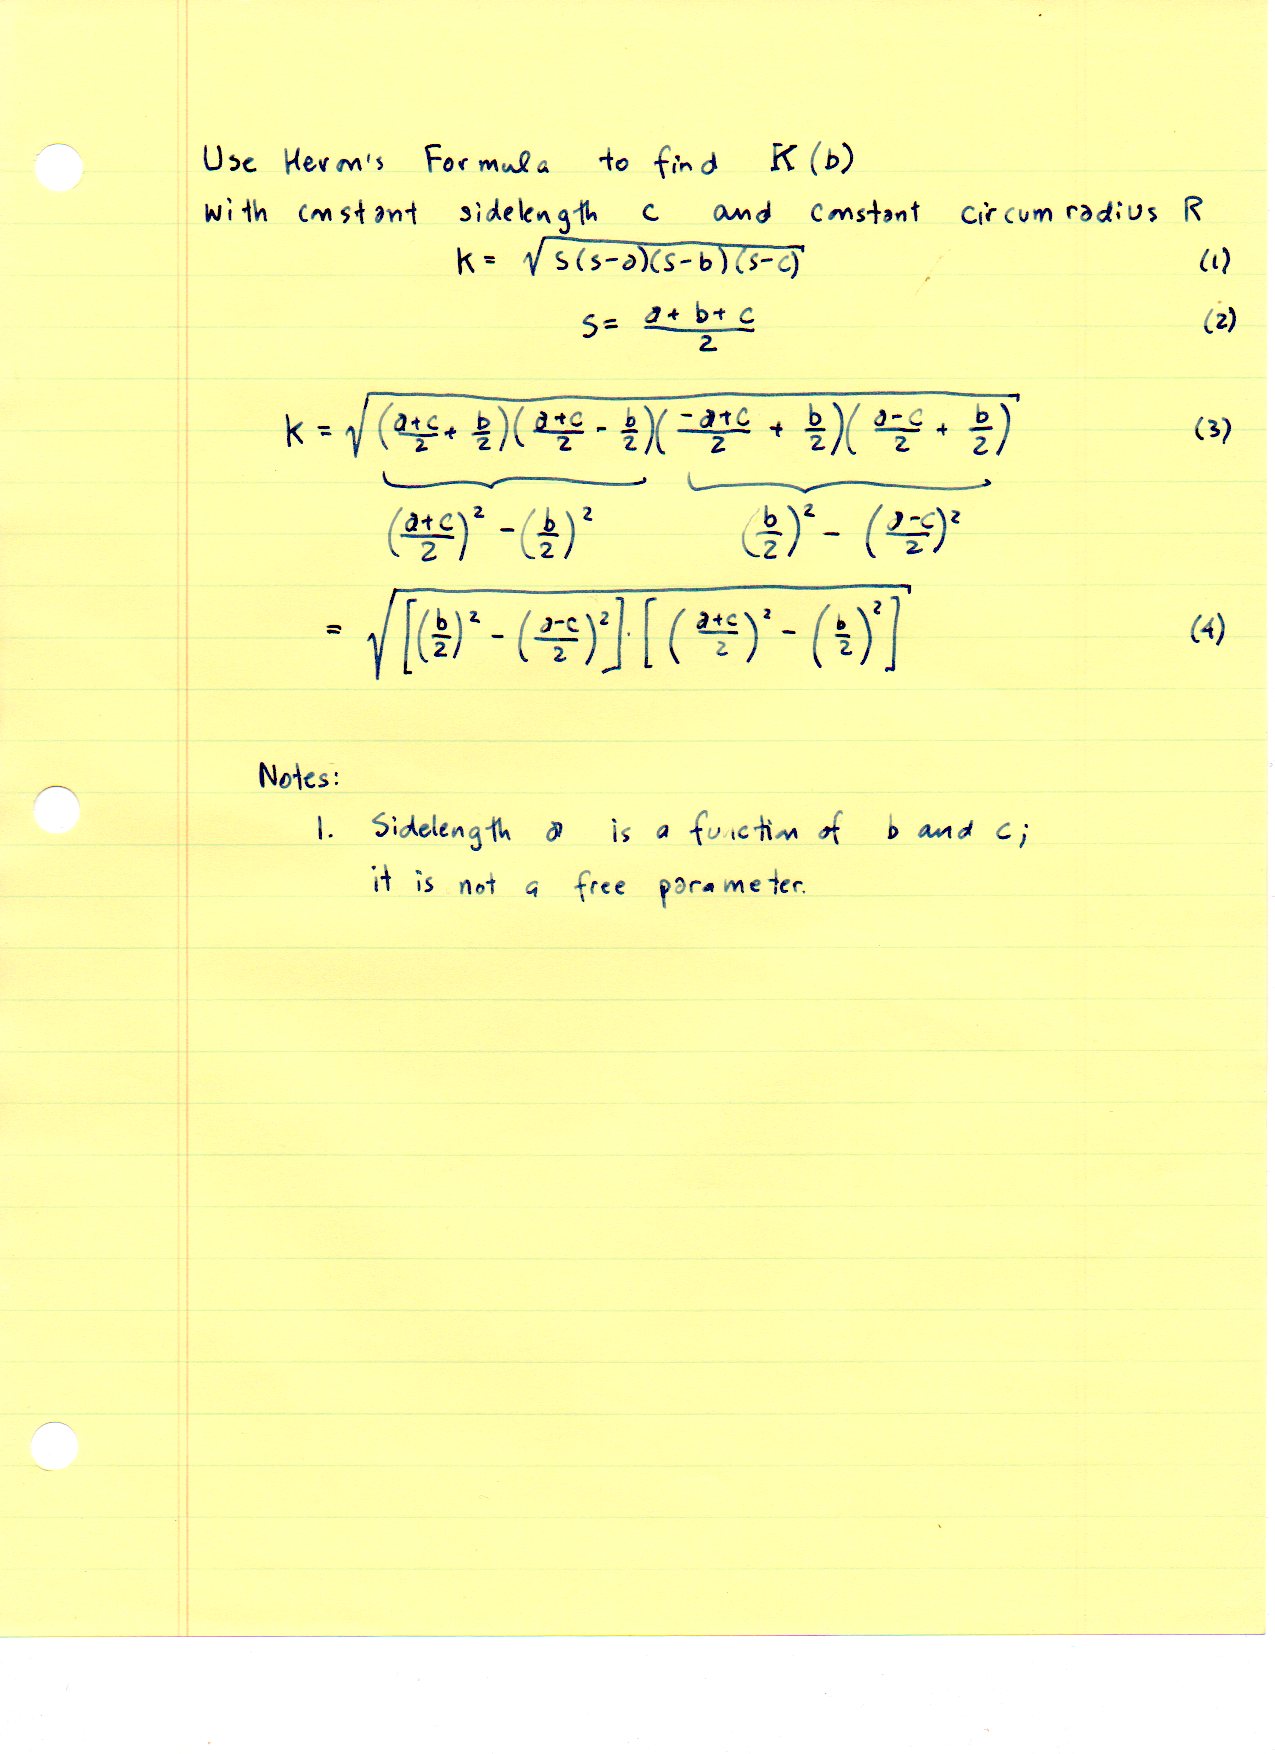 Use Heron's Formula to find K(b)
with constant sidelength c and constant circumradius R
K = √(s(s-a)(s-b)(s-c)) (1)
s = (a+b+c)/2 (2)
K = √(((a+c)/2 + b/2)((a+c)/2 - b/2)((-a+c)/2 + b/2)((a-c)/2 + b/2)) (3)
((a+c)/2)² - (b/2)² (b/2)² - ((a-c)/2)²
= √([(b/2)² - ((a-c)/2)²]·[((a+c)/2)² - (b/2)²]) (4)
Notes:
1. Sidelength a is a function of b and c;
it is not a free parameter.